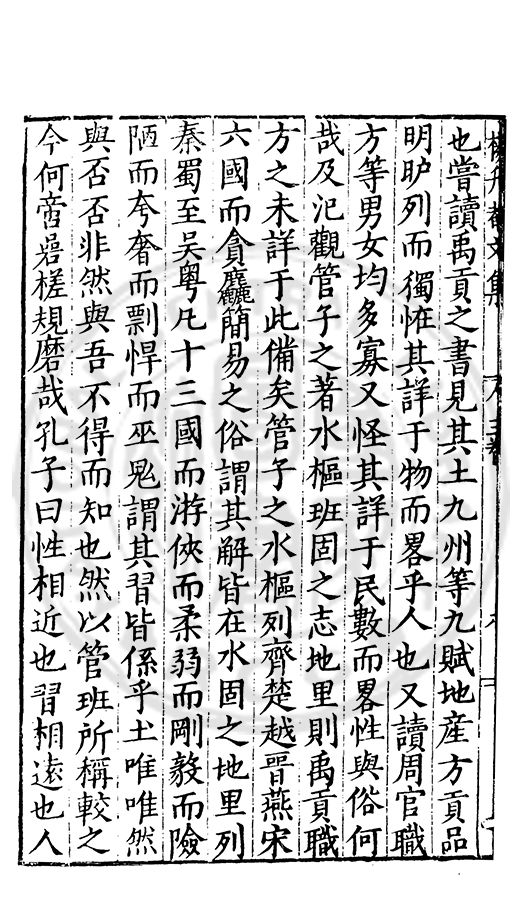 也嘗讀禹貢之書見其土九州等九賦地産方貢品
明眎列而獨恠其詳于物而畧乎人也又讀周官職
方等男女均多寡又怪其詳于民數而畧性與俗何
哉及氾觀管子之著水樞班固之志地里則禹貢職
方之未詳于此備矣管子之水樞列齊楚越晋燕宋
六國而貪麤簡易之俗謂其解皆在水固之地里列
秦蜀至吳粤凡十三國而游俠而柔弱而剛毅而險
陋而夸奢而剽悍而巫鬼謂其習皆係乎土唯唯然
與否否非然與吾不得而知也然以管班所稱較之
今何啻槎規磨哉孔子曰性相近也習相遠也人